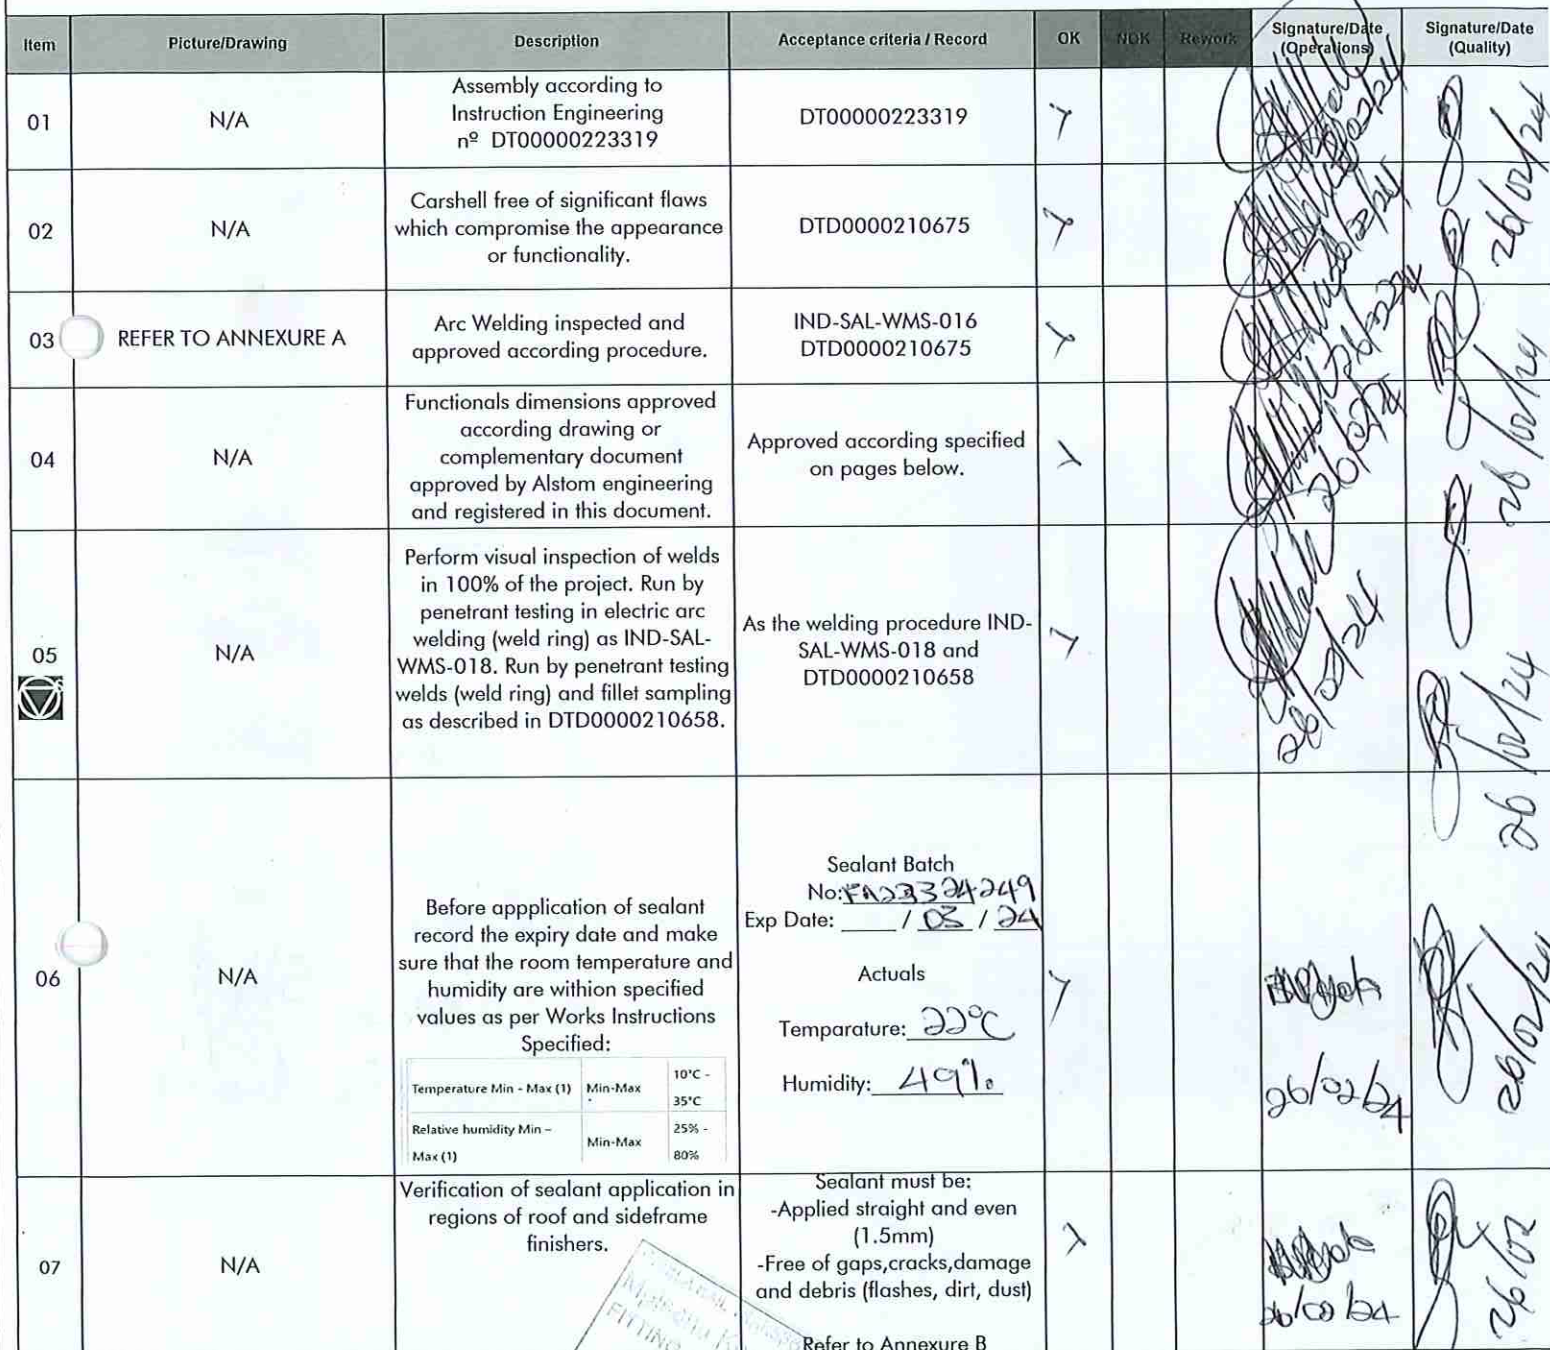 Item Picture/Drawing Description Acceptance criteria / Record OK NOK Rework Signature/Date (Operations) Signature/Date (Quality)
01
N/A
Assembly according to
Instruction Engineering
nº DT00000223319
DT00000223319
02
N/A
Carshell free of significant flaws
which compromise the appearance
or functionality.
DTD0000210675
03
REFER TO ANNEXURE A
Arc Welding inspected and
approved according procedure.
IND-SAL-WMS-016
DTD0000210675
04
N/A
Functionals dimensions approved
according drawing or
complementary document
approved by Alstom engineering
and registered in this document.
Approved according specified
on pages below.
05
N/A
Perform visual inspection of welds
in 100% of the project. Run by
penetrant testing in electric arc
welding (weld ring) as IND-SAL-
WMS-018. Run by penetrant testing
welds (weld ring) and fillet sampling
as described in DTD0000210658.
As the welding procedure IND-
SAL-WMS-018 and
DTD0000210658
26/02/24
26/02/24
06
N/A
Before appplication of sealant
record the expiry date and make
sure that the room temperature and
humidity are withion specified
values as per Works Instructions
Specified:
Temperature Min - Max (1) Min-Max 10°C -
35°C
Relative humidity Min –
Max (1) Min-Max 25% -
80%
Sealant Batch
No:FA23324249
Exp Date: ____ / 03 / 24
Actuals
Temparature: 22°C
Humidity: 49%
26/02/24
26/02/24
07
N/A
Verification of sealant application in
regions of roof and sideframe
finishers.
Sealant must be:
-Applied straight and even
(1.5mm)
-Free of gaps,cracks,damage
and debris (flashes, dirt, dust)
Refer to Annexure B
26/02/24
26/02
FITTING